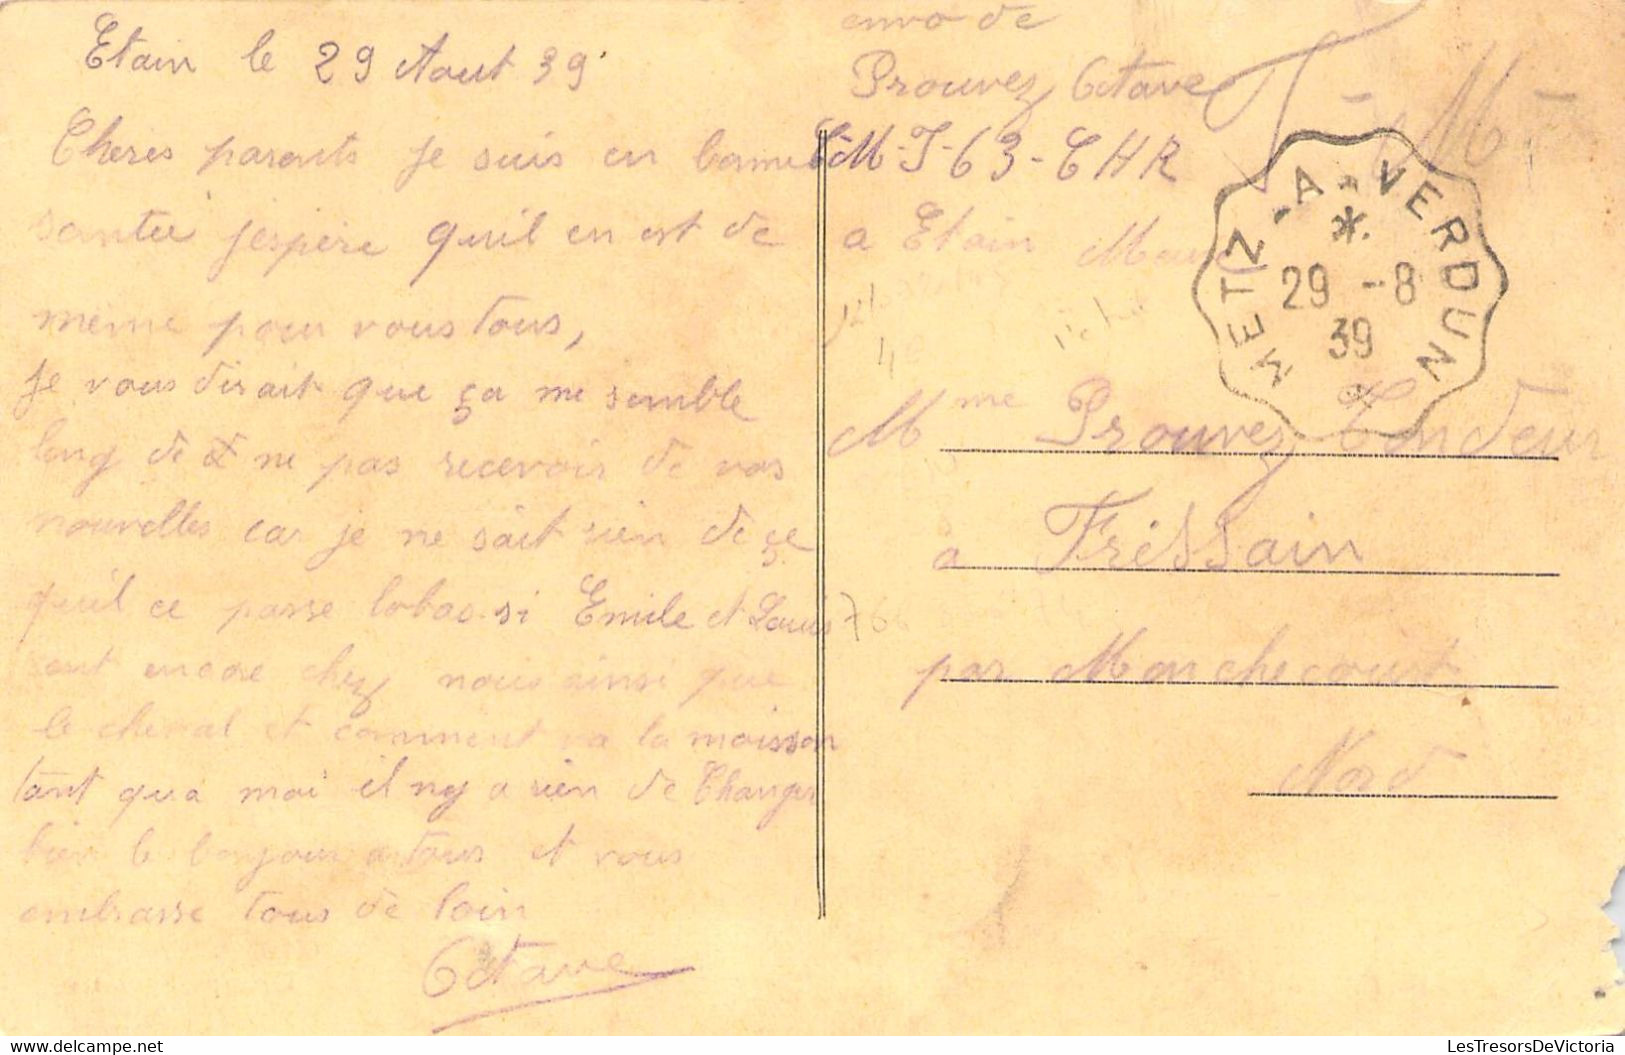 Etain le 29 Aout 39
Chéres parents je suis en bonne
santée j'espère quil en est de
même pour vous tous,
Je vous dirait que ça me semble
long de ne pas recevoir de vos
nouvelles car je ne sait rien de çe
qu'il ce passe labas si Emile et Louis
sont encore chez nous ainsi que
le cheval et comment va la moisson
tant qu'a moi il n'y a rien de Changer
bien le bonjour a tous et vous
embrasse tous de loin
Octave
envo de
Prouvez Octave
C-M-J-63-CHR
a Etain Meuse
F - M -
METZ - A - VERDUN
*
29 -8
39
Mme Prouvez Tondeur
a Fressain
par Monchecourt
Nord
© LesTresorsDeVictoria
LesTresorsDeVictoria.com